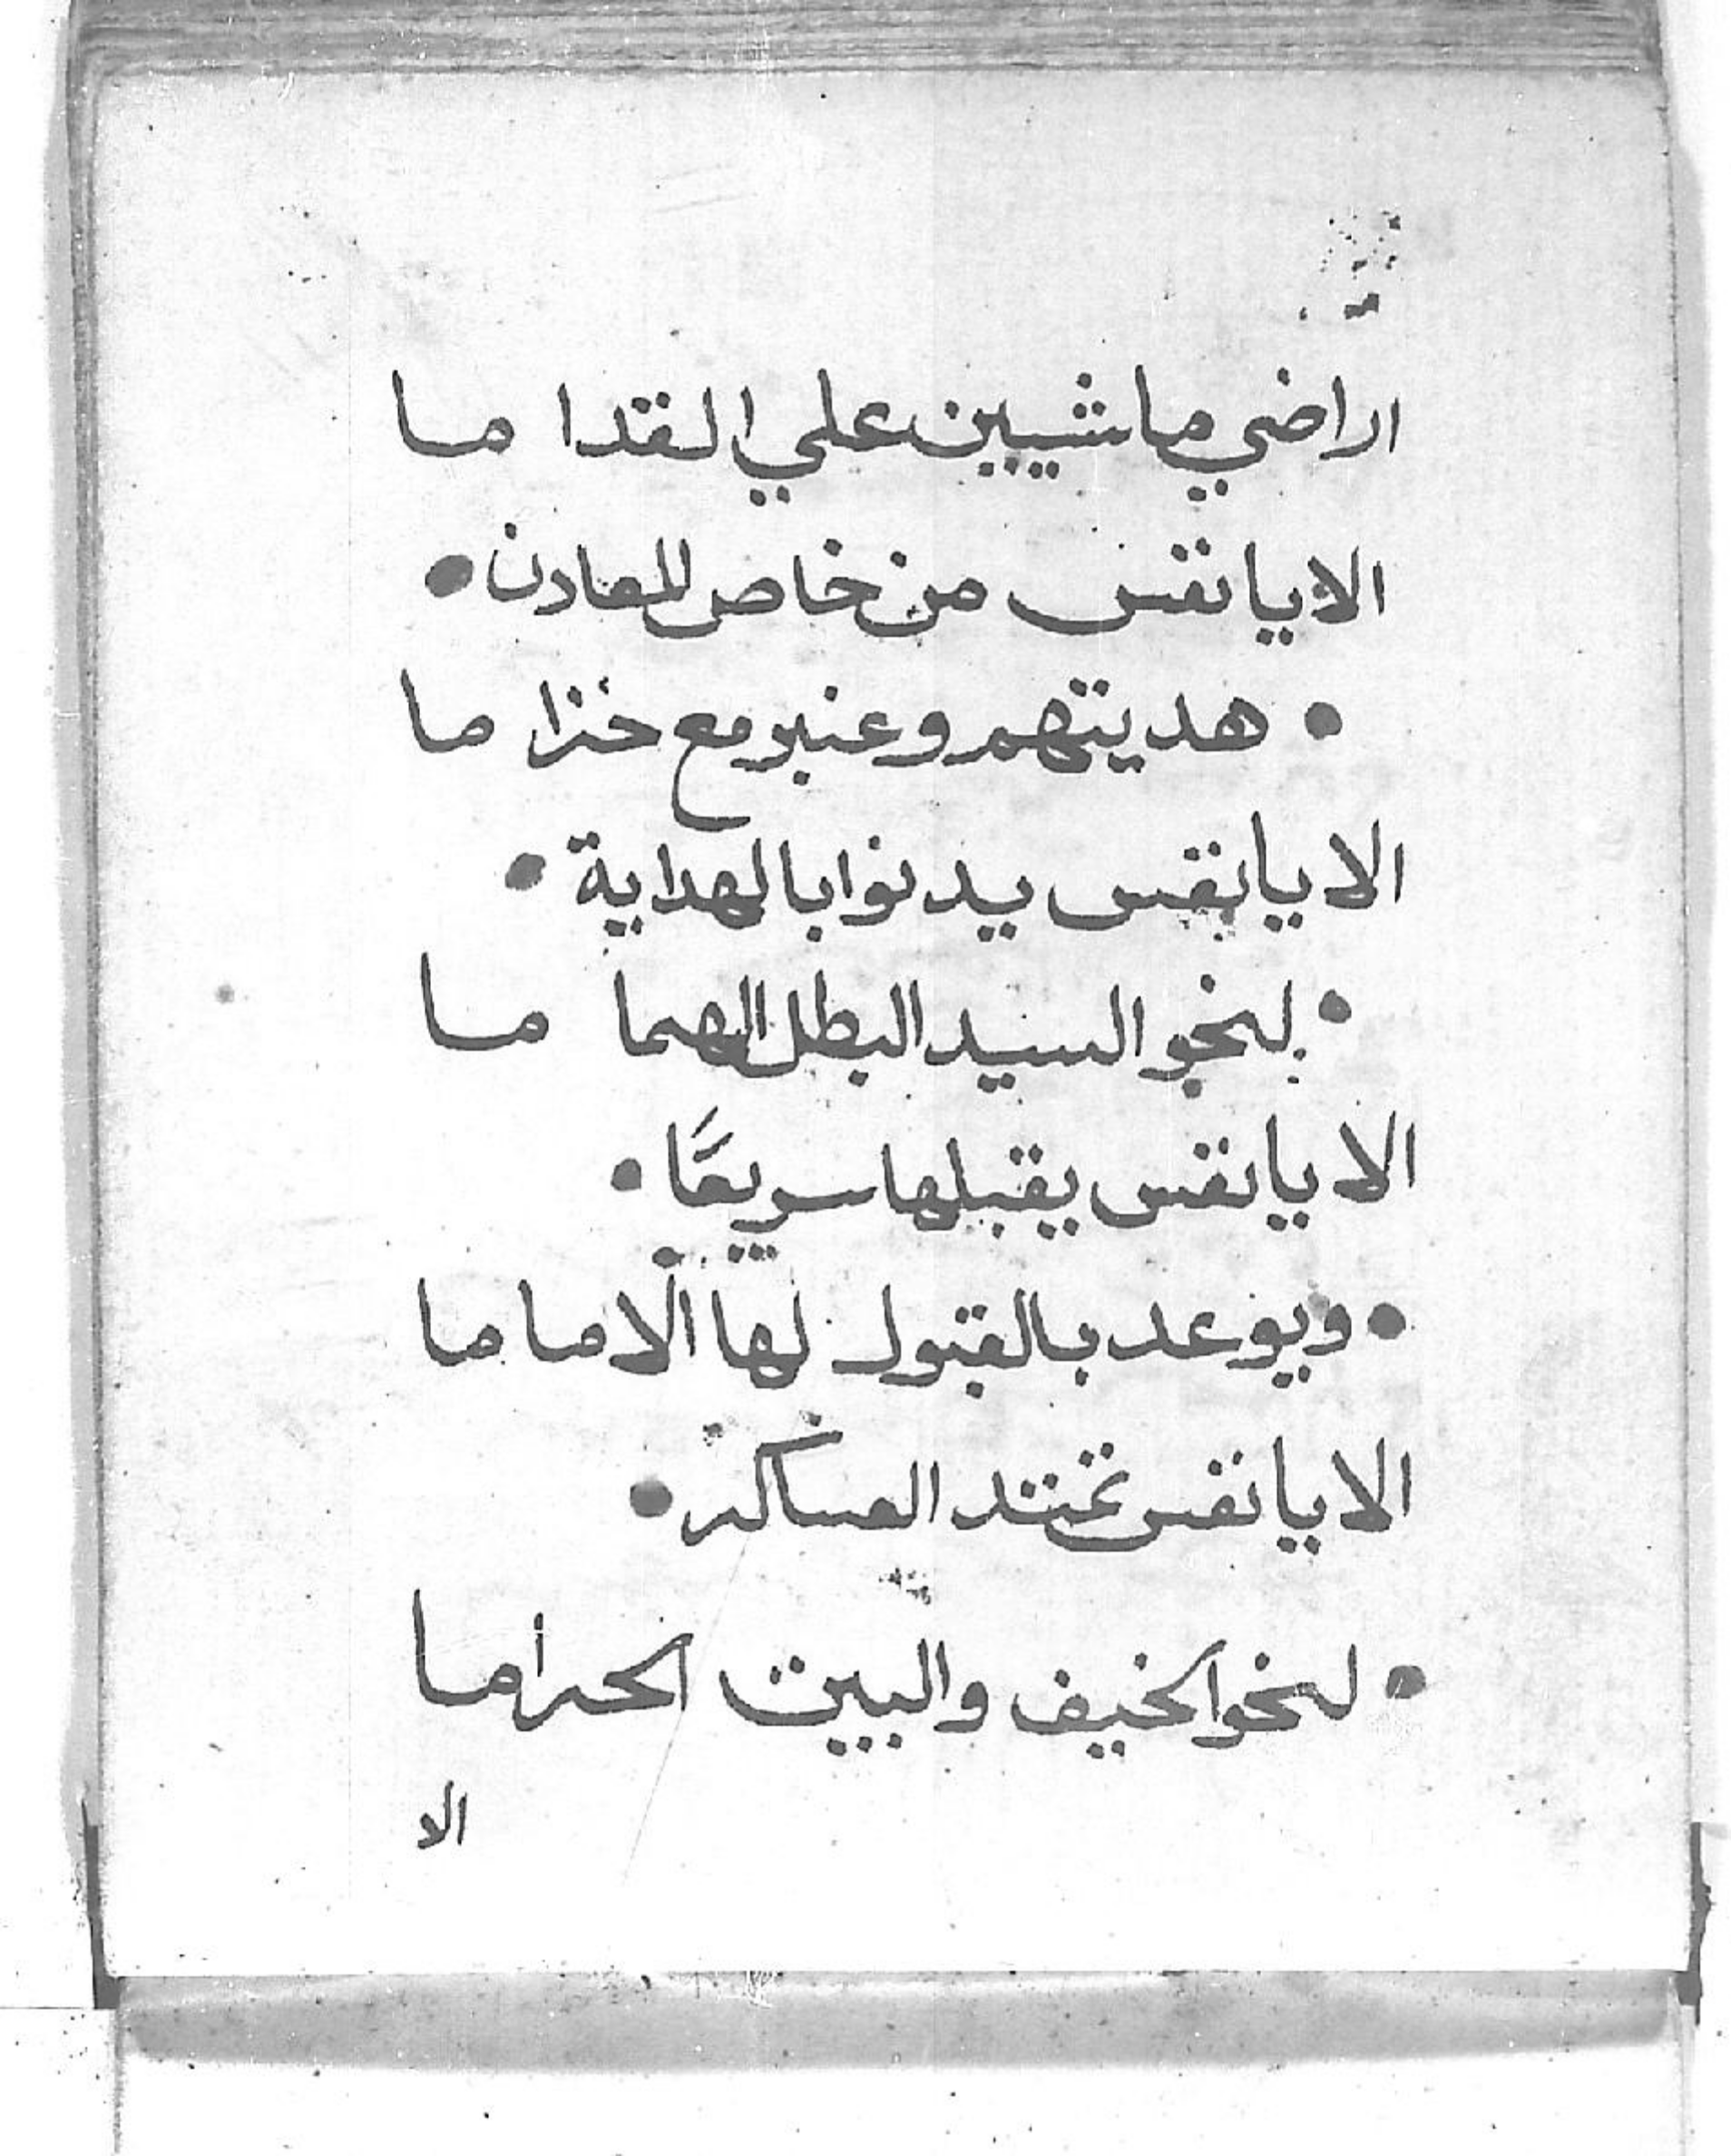 اراضي ماشيين علي القداما
الا يا نفس من خاص المعادن •
• هديتهم وعنبر مع خزاما
الا يا نفس يدنوا بالهداية •
• لنحو السيد البطل الهماما
الا يا نفس يقبلها سريعًا •
• ويوعد بالقبول لها الاماما
الا يا نفس تمتد العساكر •
• لنحو الخيف والبيت الحراما
الا